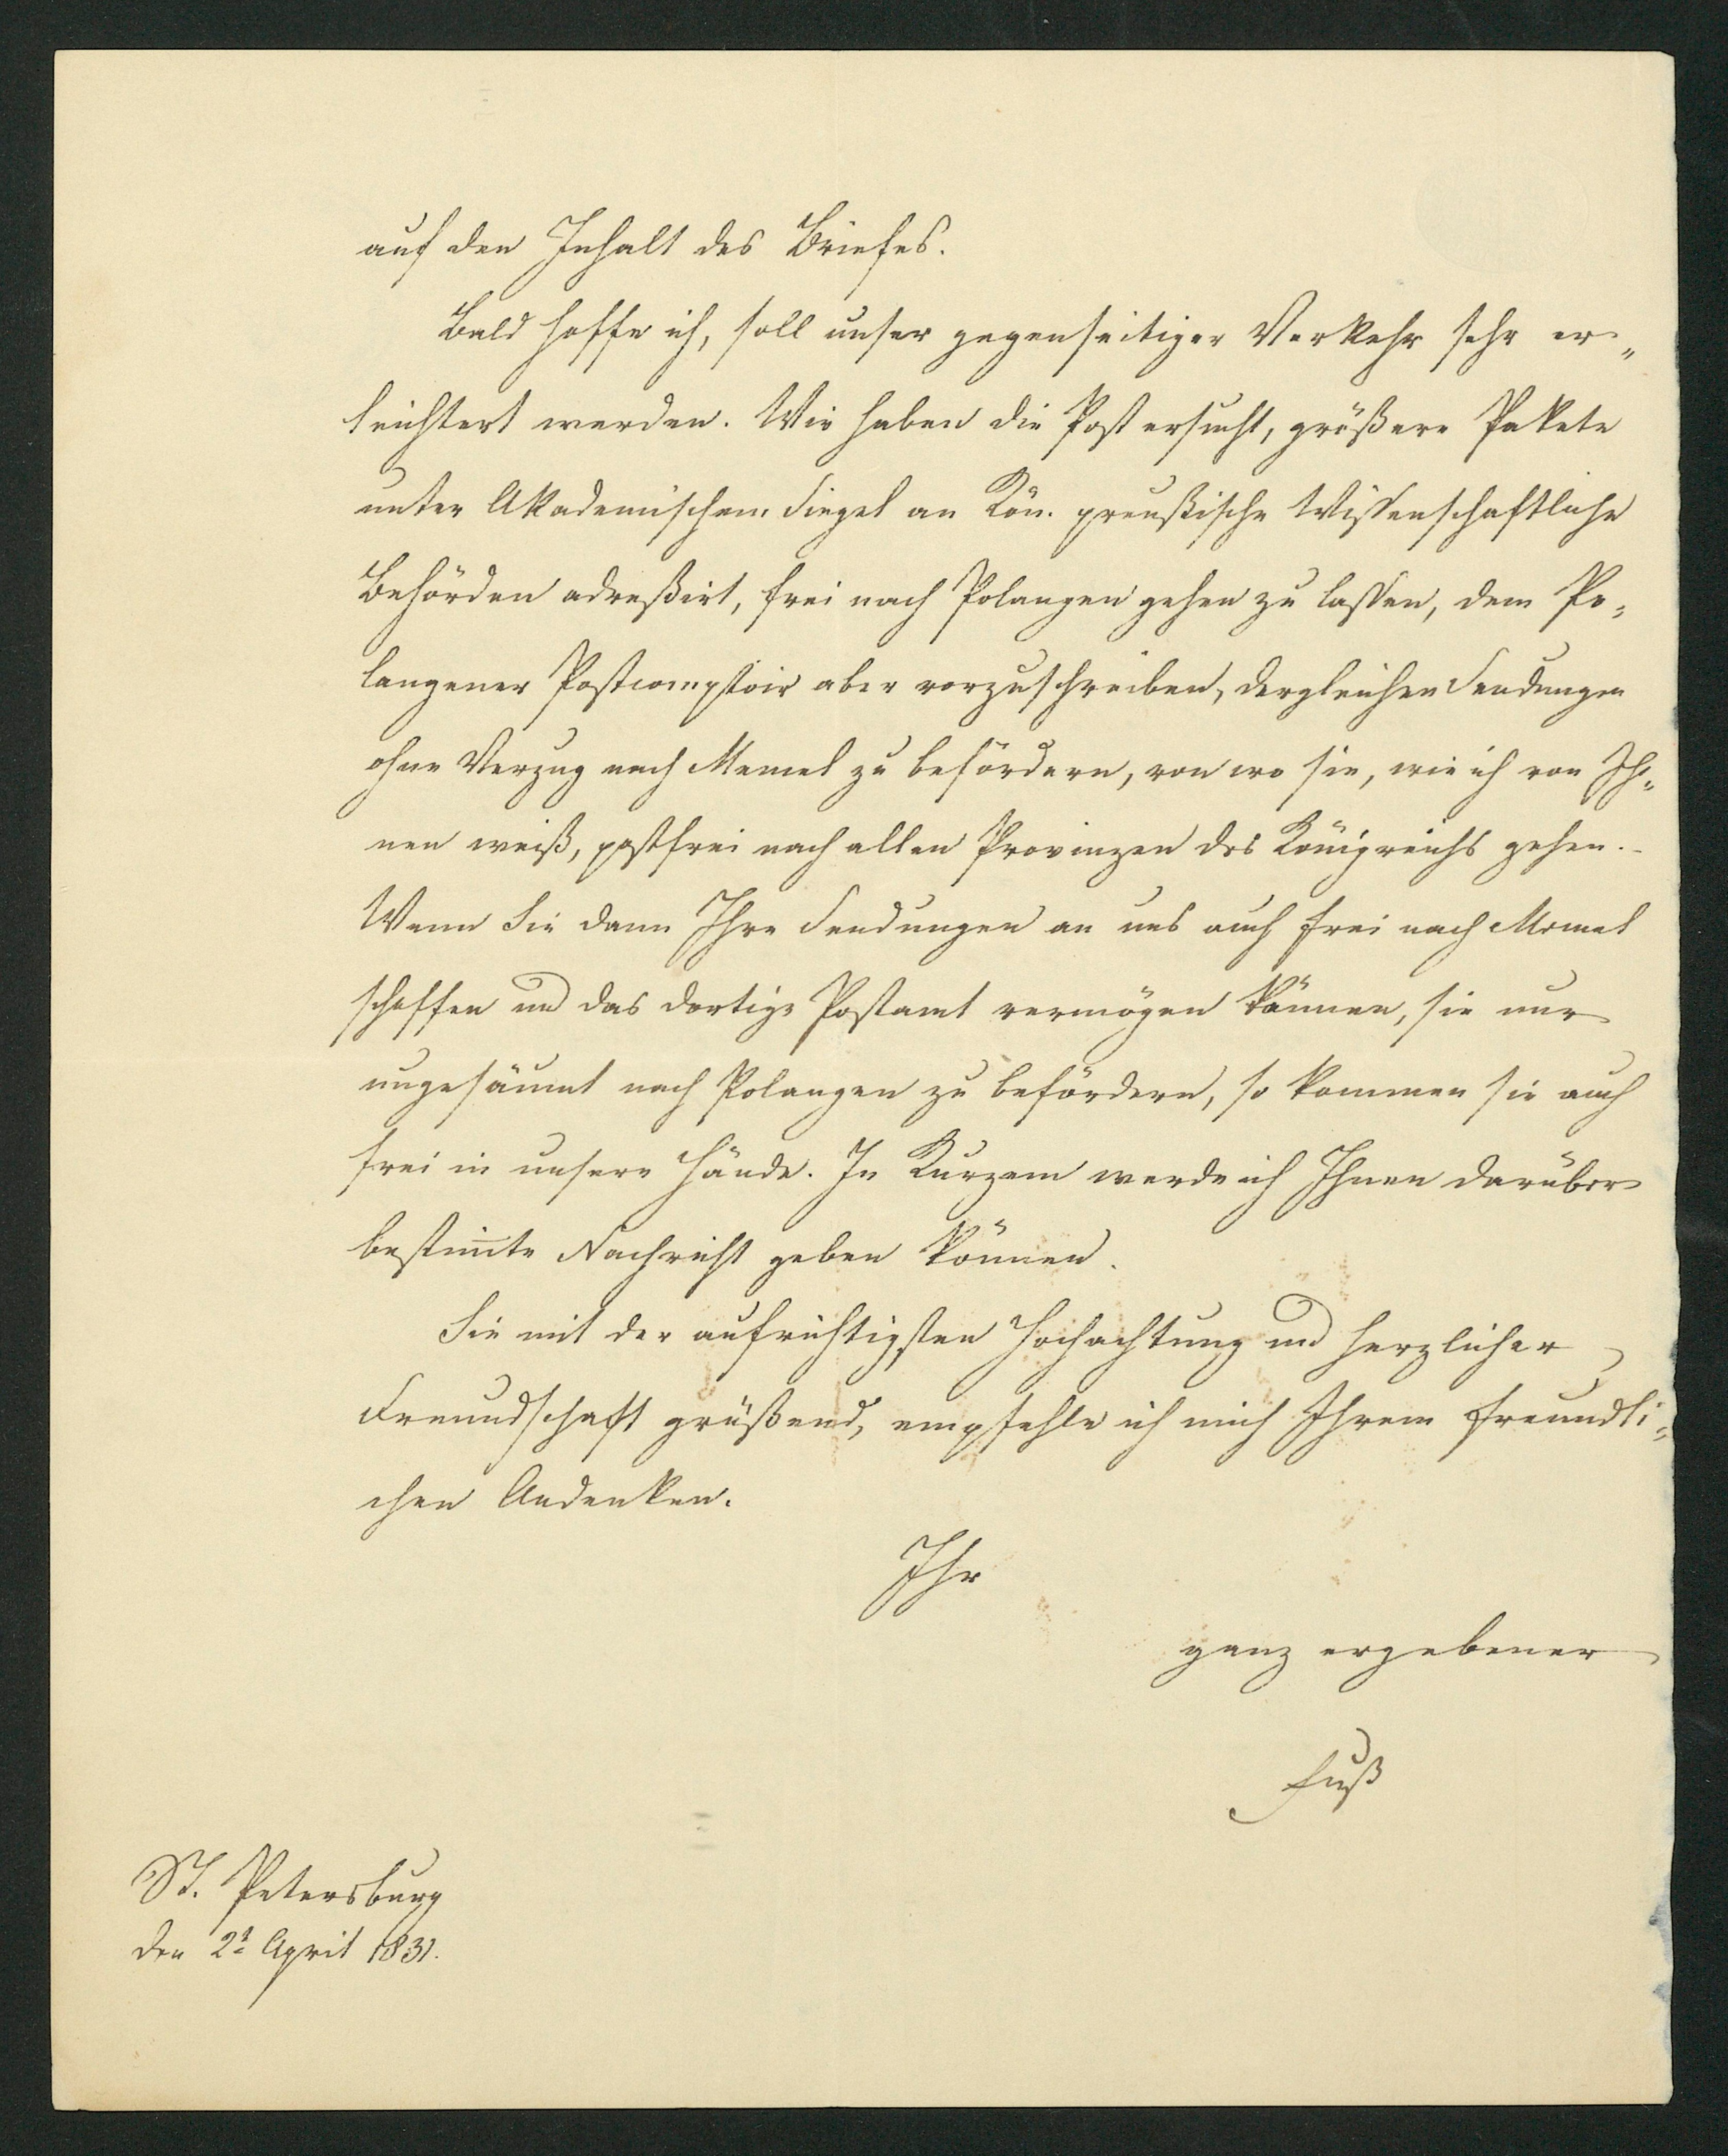 auf den Inhalt des Briefes.
Bald hoffe ich, soll unser gegenseitiger Verkehr sehr er„
leichtert werden. Wir haben die Post ersucht, größere Pakete
unter Akademischem Siegel an Kön. preußische Wissenschaftliche
Behörden adreßirt, frei nach Polangen gehen zu lassen, dem Po„
langener Postcomptoir aber vorzuschreiben, dergleichen Sendungen
ohne Verzug nach Memel zu befördern, von wo sie, wie ich von Ih„
nen weiß, postfrei nach allen Provinzen des Königreichs gehen. –
Wenn Sie dann Ihre Sendungen an uns auch frei nach Memel
schaffen und das dortige Postamt vermögen können, sie nur
ungesäumt nach Polangen zu befördern, so kommen sie auch
frei in unsere Hände. In Kurzem werde ich Ihnen darüber
bestim̅te Nachricht geben können.
Sie mit der aufrichtigsten Hochachtung und herzlicher
Freundschaft grüßend, empfehle ich mich Ihrem freundli„
chen Andenken.
Ihr
ganz ergebener
Fuß
St. Petersburg
den 2t April 1831.